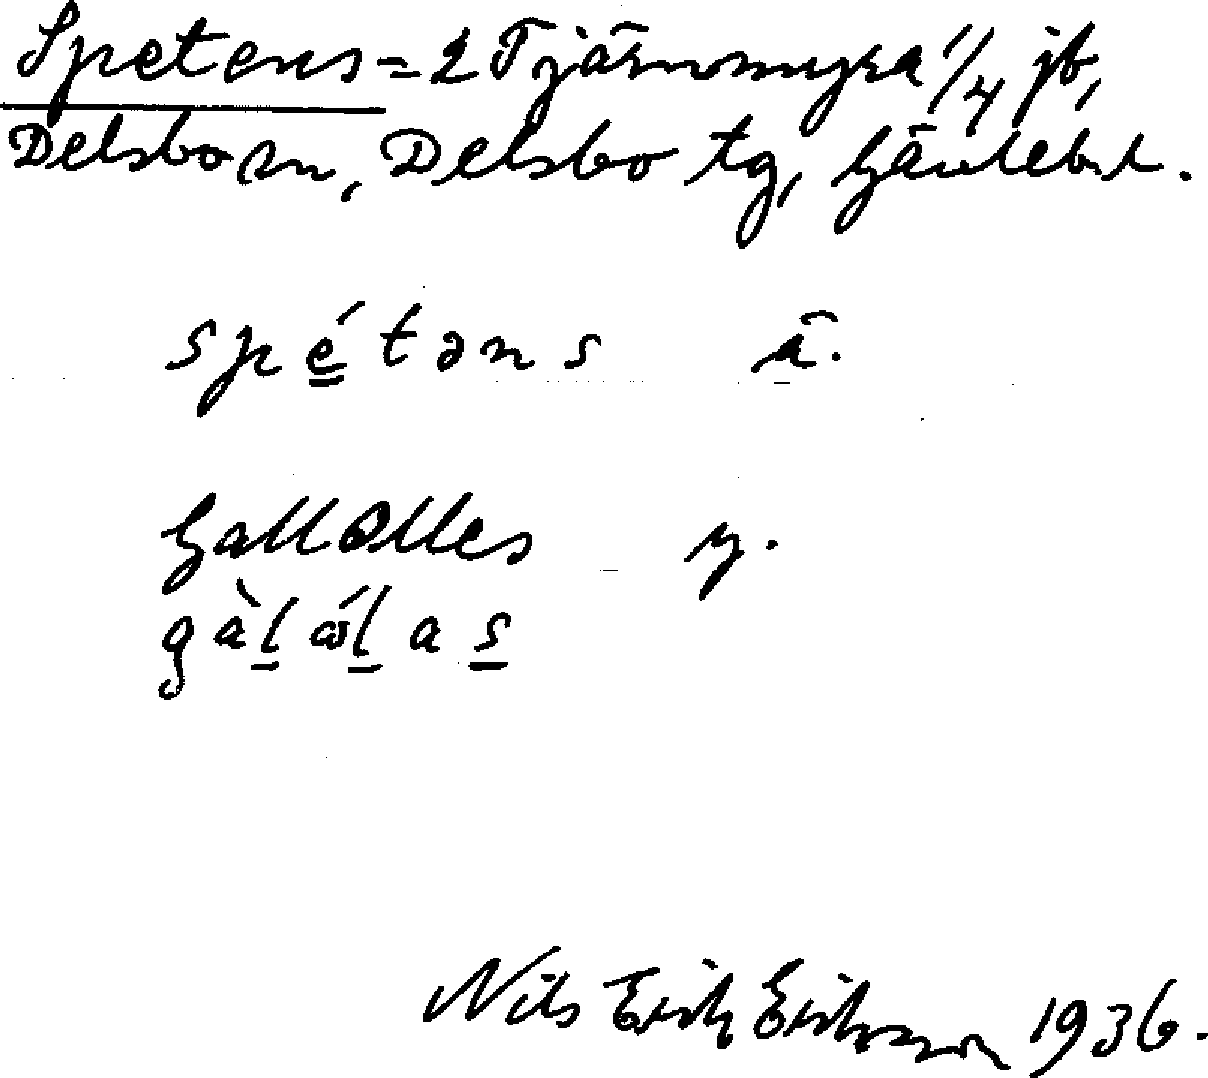 Spetens = 2 Tjärnmyra 1/4 jb,
Delsbo sn, Delsbo tg, Gävlebl.
spét̄əns ä.
GallOlles y.
gàlólas
Nils Erik Eriksson 1936.